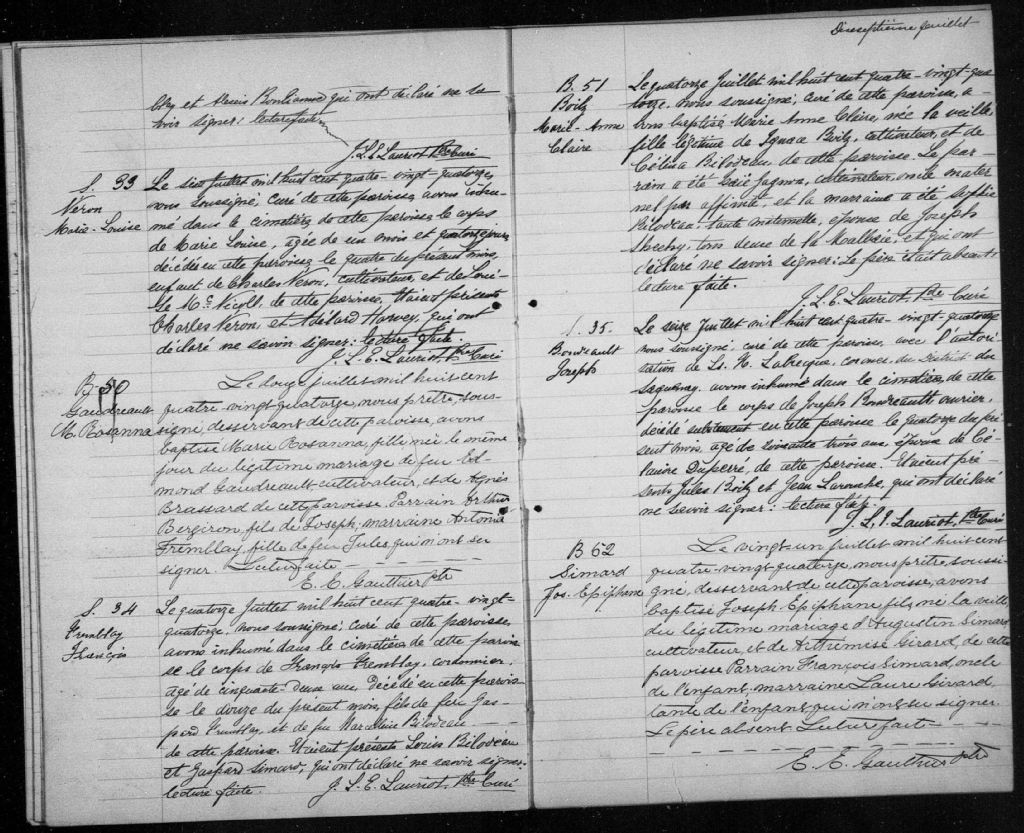 et Denis Boulianne qui ont déclaré ne sa
voir signer: lecture faite
J. L. E. Lauriot, Ptre Curé
S. 33
Veron
Marie-Louise
Le six Juillet mil huit cent quatre-vingt-quatorze,
nous soussigné, curé de cette paroisse, avons inhu-
mé dans le cimetière de cette paroisse le corps
de Marie Louise, agée de un mois et quatorze jours,
décédée en cette paroisse le quatre du présent mois,
enfant de Charles Veron, cultivateur, et de Loui-
se Mc Nicoll, de cette paroisse. Etaient présents
Charles Veron, et Adélard Harvey, qui ont
déclaré ne savoir signer: lecture faite.
J. L. E. Lauriot, Ptre Curé
B 50
Gaudreault
M. Rosanna
Le douze juillet mil huit cent
quatre-vingt quatorze, nous prêtre, sous-
signé desservant de cette paroisse, avons
baptisé Marie Rosanna, fille née le même
jour du légitime mariage de feu Ed-
mond Gaudreault cultivateur, et de Agnès
Brassard de cette paroisse. Parrain Arthur
Bergeron, fils de Joseph; marraine Antonia
Tremblay, fille de feu Jules, qui n'ont su
signer. Lecture faite
E. E. Gauthier Ptr
S. 34
Tremblay
François
Le quatorze Juillet mil huit cent quatre-vingt-
quatorze, nous soussigné, curé de cette paroisse,
avons inhumé dans le cimetière de cette parois-
se le corps de François Tremblay, cordonnier,
agé de cinquante-deux ans, décédé en cette parois-
se le douze du présent mois, fils de feu Gas-
pard Tremblay, et de feu Marceline Bilodeau
de cette paroisse. Etaient présents Louis Bilodeau
et Gaspard Simard, qui ont déclaré ne savoir signer:
lecture faite. J. L. E. Lauriot, Ptre Curé
Dixseptième feuillet
B. 51
Boily
Marie-Anne
Claire
Le quatorze Juillet mil huit cent quatre-vingt-qua-
torze, nous soussigné, curé de cette paroisse, a-
vons baptisé Marie Anne Claire, née la veille,
fille légitime de Ignace Boily, cultivateur, et de
Célina Bilodeau, de cette paroisse. Le par-
rain a été Gagnon, cultivateur, oncle mater
nel par affinité, et la marraine a été Sophie
Bilodeau, tante maternelle, épouse de Joseph
tous deux de la Malbaie, et qui ont
déclaré ne savoir signer: Le père était absent:
lecture faite.
J. L. E. Lauriot, Ptre Curé
S. 35.
Boudreault
Joseph
Le seize Juillet mil huit cent quatre-vingt-quatorze
nous soussigné, curé de cette paroisse, avec l'autori-
sation de Ls. N. Labecque, coroner du District du
Saguenay, avons inhumé dans le cimetière de cette
paroisse le corps de Joseph Boudreault, ouvrier,
décédé subitement en cette paroisse le quatorze du pré-
sent mois, agé de soixante trois ans, époux de Cé-
Duperré, de cette paroisse. Etaient pré-
sents Jules Boily et Jean Larouche, qui ont déclaré
ne savoir signer: lecture faite.
J. L. E. Lauriot, Ptre Curé
B 52
Simard
Jos. Epiphane
Le vingt un juillet mil huit cent
quatre-vingt quatorze, nous prêtre, soussi-
gné, desservant de cette paroisse, avons
baptisé Joseph. Epiphane fils, né la veille
du légitime mariage d'Augustin Simard
cultivateur, et de Arthémise Girard, de cette
paroisse Parrain François Simard, oncle
de l'enfant; marraine Laure Girard
tante de l'enfant qui n'ont su signer
Le père absent Lecture faite
E. E. Gauthier Ptr